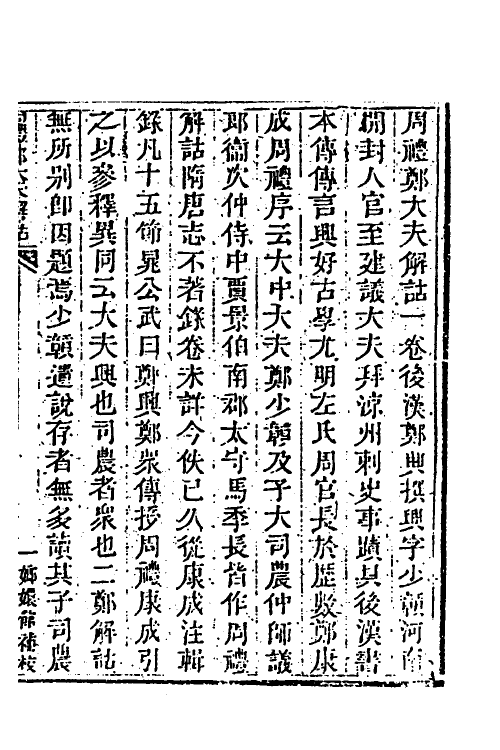 周禮鄭大夫解詁一卷後漢鄭興撰興字少贛河南
開封人官至建議大夫拜涼州刺史事蹟具後漢書
本傳傳言興好古學尤明左氏周官長於歷數鄭康
成周禮序云大中大夫鄭少贛及子大司農仲師議
郎衞次仲侍中賈景伯南郡太守馬季長皆作周禮
解詁隋唐志不著錄卷未詳今佚已久從康成注輯
錄凡十五節晁公武曰鄭興鄭衆傳授周禮康成引
之以參釋異同云大夫興也司農者衆也二鄭解詁
無所別即因題焉少贛遺說存者無多讀其子司農
周禮鄭大夫解詁
一
嫏嬛館補校